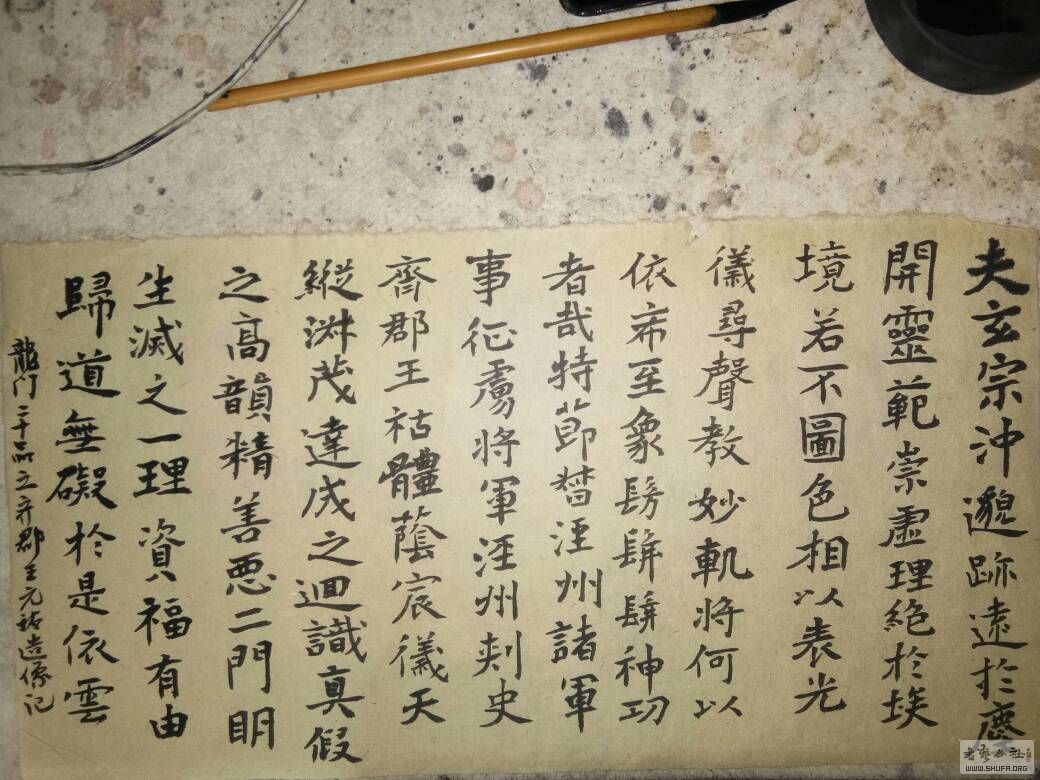 夫玄宗沖邈跡遠於塵
開靈範崇虛理絕於埃
境若不圖色相以表光
儀尋聲教妙軌將何以
依希至象髣髴髴神功
者哉特節督涇州諸軍
事征虜將軍涇州刾史
齊郡王祐體蔭宸儀天
縱淋茂達成之迴識真假
之高韻精善惡二門明
生滅之一理資福有由
歸道無礙於是依雲
龍门二十品之齐郡王元祐造像记
書藝公社
WWW.SHUFA.ORG